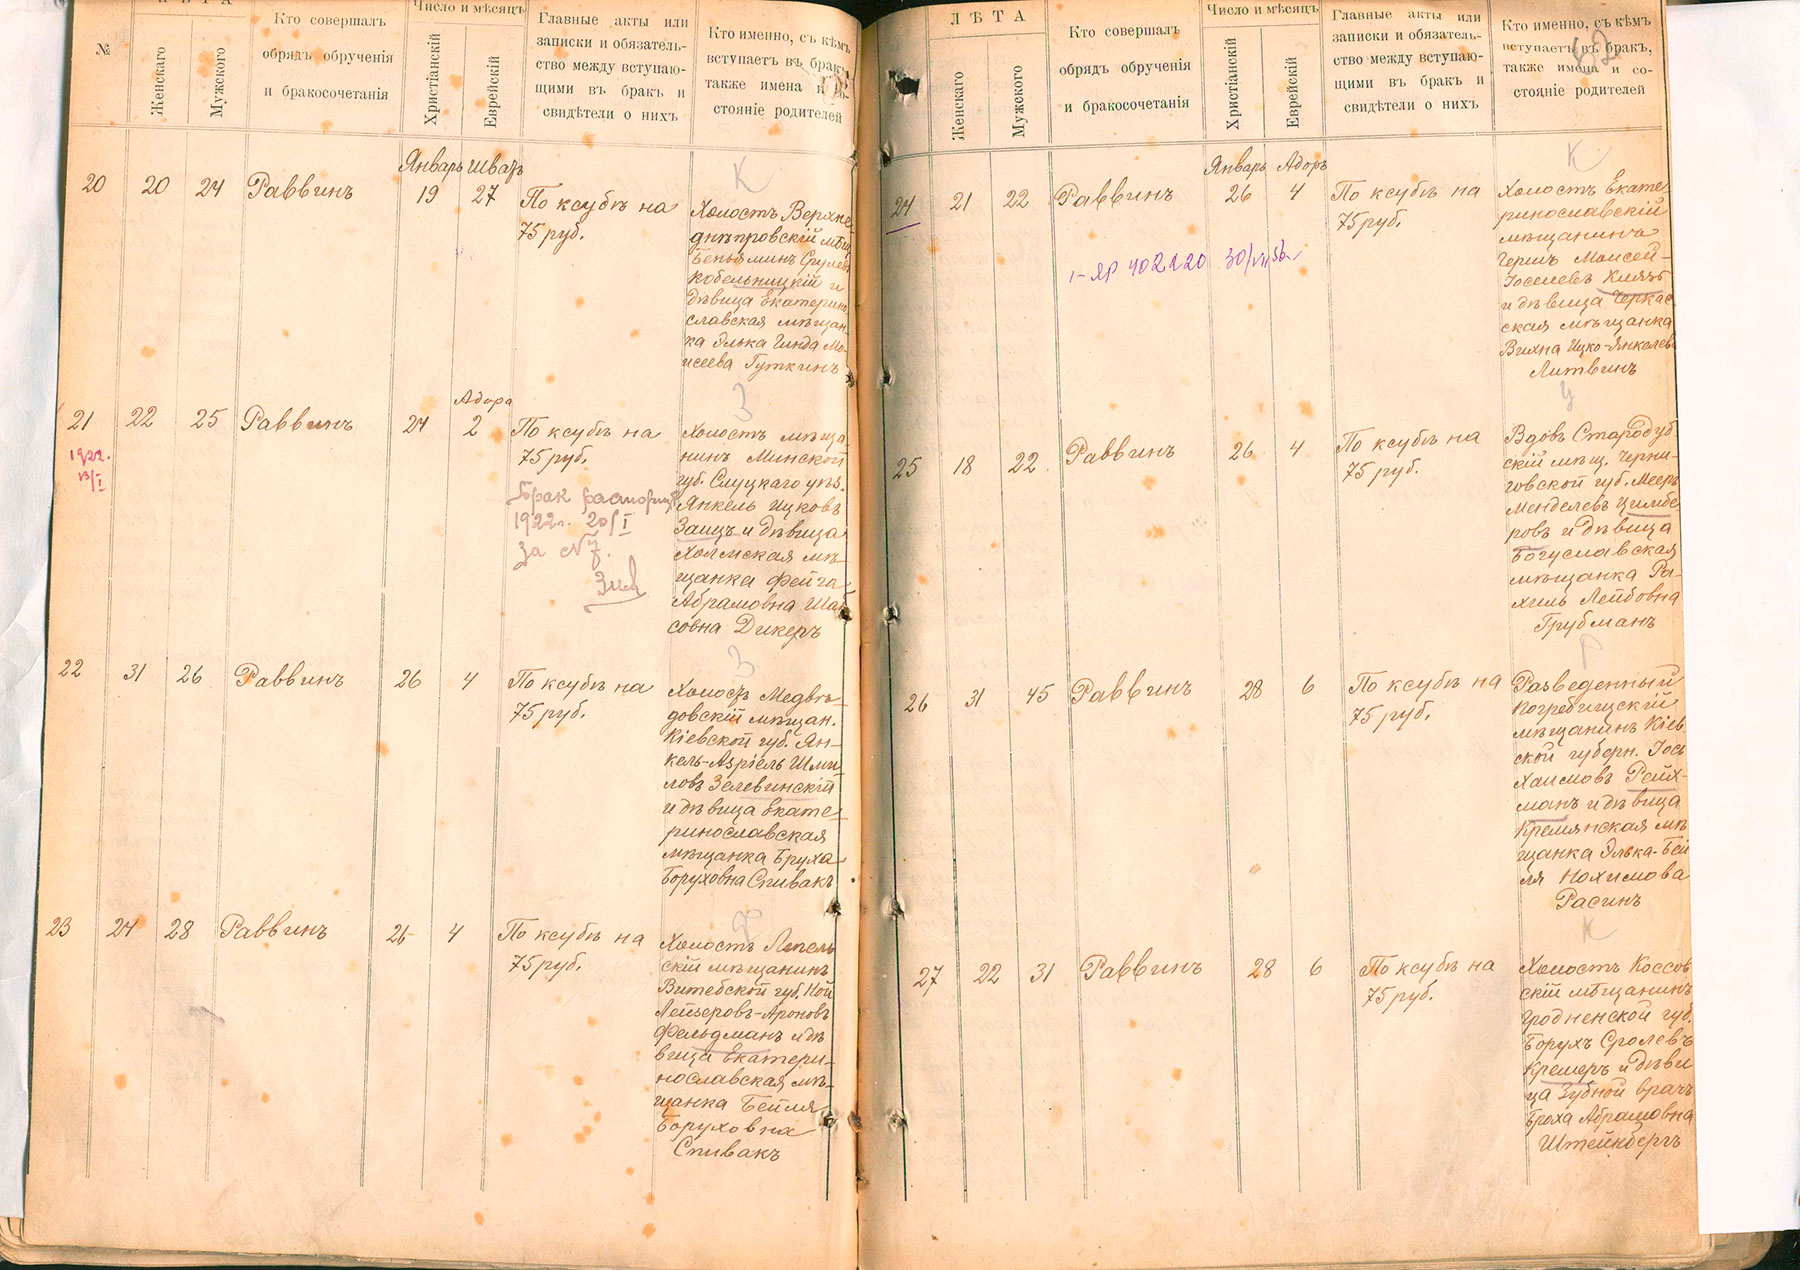 ЛѢТА
№
Женскаго
Мужского
Кто совершалъ
обрядъ обрученія
и бракосочетанія
Число и мѣсяцъ
Христіанскій
Еврейскій
Главные акты или
записки и обязатель-
ство между вступаю-
щими въ бракъ и
свидѣтели о нихъ
Кто именно, съ кѣмъ
вступаетъ въ бракъ,
также имена и со-
стояніе родителей
Январь Шватъ
20 20 24 Раввинъ 19 27
По ксубѣ на
75 руб.
К
Холостъ Верхне-
днѣпровскій мѣщ.
Беньяминъ Срулев
Кобельницкій и
дѣвица Екатерино
славская мѣщан-
ка Элька Гинда Мо-
исеева Гуткинъ
Адора
21 22 25 Раввинъ 24 2
1922.
13/I
По ксубѣ на
75 руб.
Брак расторг
1922г. 20/I
за №7.
З
Холостъ мѣща-
нинъ Минской
губ. Слуцкаго уѣз.
Янкель Ицковъ
Заицъ и дѣвица
Холмская мѣ-
щанка Фейга
Абрамовна Шай
совна Дикеръ
22 31 26 Раввинъ 26 4
По ксубѣ на
75 руб.
З
Холостъ Медвѣ-
довскій мѣщан.
Кіевской губ. Ян-
кель-Азріель Шму
ловъ Зелевинскій
и дѣвица Екате-
ринославская
мѣщанка Бруха
Боруховна Спивакъ
23 24 28 Раввинъ 26 4
По ксубѣ на
75 руб.
Ф
Холостъ Лепель
скій мѣщанинъ
Витебской губ. Ной
Лейзеровъ-Ароновъ
Фельдманъ и дѣ
вица Екатери-
нославская мѣ-
щанка Бейля
Боруховна
Спивакъ
ЛѢТА
Женскаго
Мужского
Кто совершалъ
обрядъ обрученія
и бракосочетанія
Число и мѣсяцъ
Христіанскій
Еврейскій
Главные акты или
записки и обязатель-
ство между вступаю-
щими въ бракъ и
свидѣтели о нихъ
Кто именно, съ кѣмъ
вступаетъ въ бракъ,
также имена и со-
стояніе родителей
62
Январь Адоръ
24 21 22 Раввинъ 26 4
I-ЯР 402220 30/VII 56
По ксубѣ на
75 руб.
К
Холостъ Екате
ринославскій
мѣщанинъ
Гершъ Моисей-
Іоселевъ Князъ
и дѣвица Черкас
ская мѣщанка
Вихна Ицко-Янкелев
Литвинъ
25 18 22 Раввинъ 26 4
По ксубѣ на
75 руб.
Ц
Вдовъ Стародуб
скій мѣщ. Черни-
говской губ. Мееръ
Менделевъ Цимбе
ровъ и дѣвица
Богуславская
мѣщанка Ра-
хиль Лейбовна
Грубманъ
26 31 45 Раввинъ 28 6
По ксубѣ на
75 руб.
Р
Разведенный
Погребищскій
мѣщанинъ Кіев
ской губерн. Іось
Хаимовъ Рейх-
манъ и дѣвица
Кремянская мѣ
щанка Элька-Бей
ля Нохимова
Расинъ
27 22 31 Раввинъ 28 6
По ксубѣ на
75 руб.
К
Холостъ Коссов
скій мѣщанинъ
Гродненской губ.
Борухъ Сролевъ
Кремеръ и дѣви
ца Зубной врачъ
Броха Абрамовна
Штейнбергъ